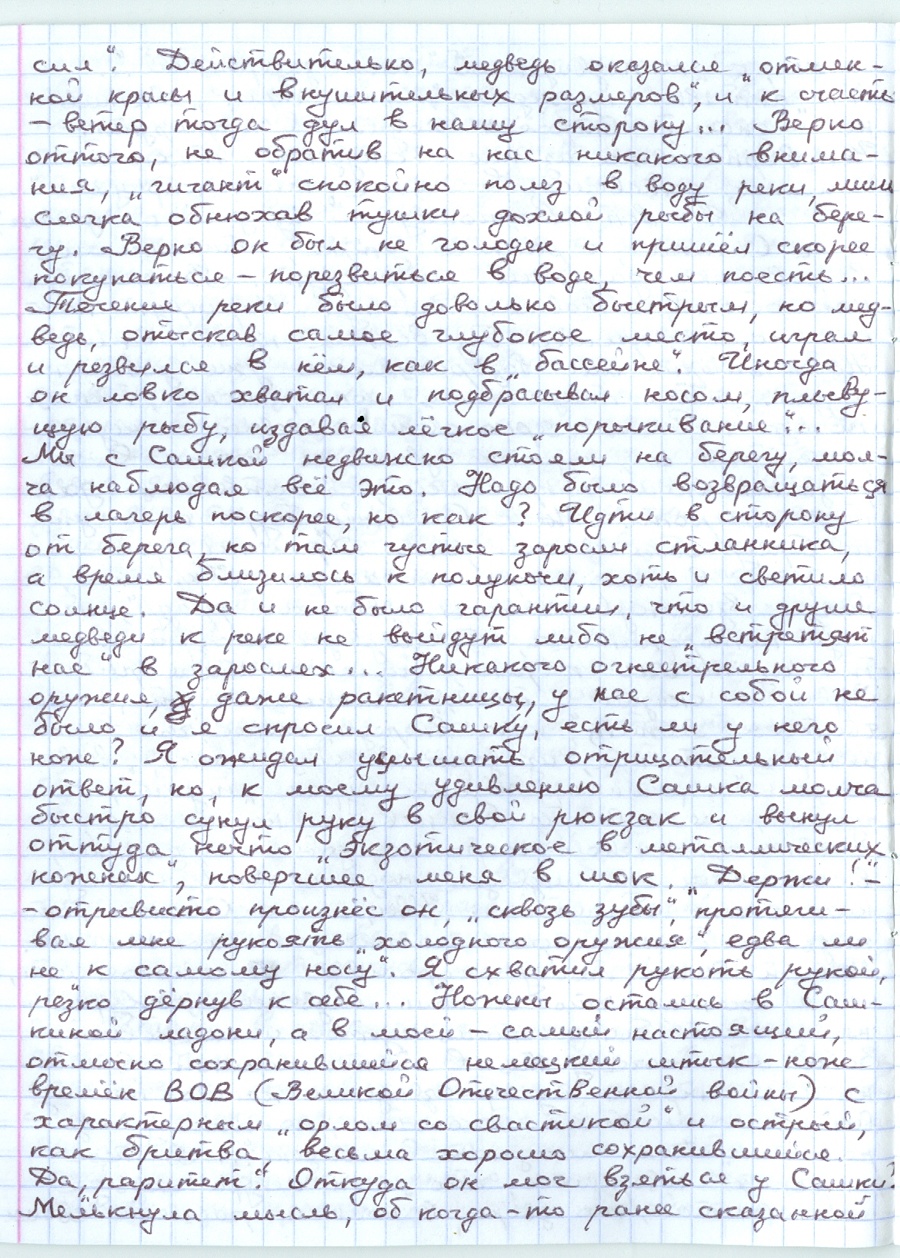 сил". Действительно, медведь оказался „отмен-
ной красы и внушительных размеров", и к счастью
– ветер тогда дул в нашу сторону... Верно
оттого, не обратив на нас никакого внима-
ния, „гигант" спокойно полез в воду реки, лишь
слегка обнюхав тушки дохлой рыбы на бере-
гу. Верно он был не голоден и пришёл скорее
покупаться – порезвиться в воде, чем поесть...
Течение реки было довольно быстрым, но мед-
ведь, отыскав самое глубокое место, играл
и резвился в нём, как в „бассейне". Иногда
он ловко хватал и подбрасывал носом, плыву-
щую рыбу, издавая лёгкое „порыкивание"...
Мы с Сашкой недвижно стояли на берегу, мол-
ча наблюдая всё это. Надо было возвращаться
в лагерь поскорее, но как? Идти в сторону
от берега, но там густые заросли стланника,
а время близилось к полуночи, хоть и светило
солнце. Да и не было гарантии, что и другие
медведи к реке не выйдут либо не „встретят
нас" в зарослях... Никакого огнестрельного
оружия, даже ракетницы, у нас с собой не
было и я спросил Сашку, есть ли у него
нож? Я ожидал услышать отрицательный
ответ, но, к моему удивлению Сашка молча
быстро сунул руку в свой рюкзак и вынул
оттуда нечто „экзотическое в металлических
ножнах", повергшее меня в шок. „Держи!" –
– отрывисто произнёс он, „сквозь зубы", протяги-
вая мне рукоять „холодного оружия", едва ли
не к самому носу". Я схватил рукоть рукой,
резко дёрнув к себе... Ножны остались в Саш-
киной ладони, а в моей – самый настоящий,
отлично сохранившийся немецкий штык-нож
времён ВОВ (Великой Отечественной войны) с
характерным „орлом со свастикой" и острый,
как бритва, весьма хорошо сохранившийся.
Да, раритет"! Откуда он мог взяться у Сашки?
Мелькнула мысль, об когда-то ранее сказанной